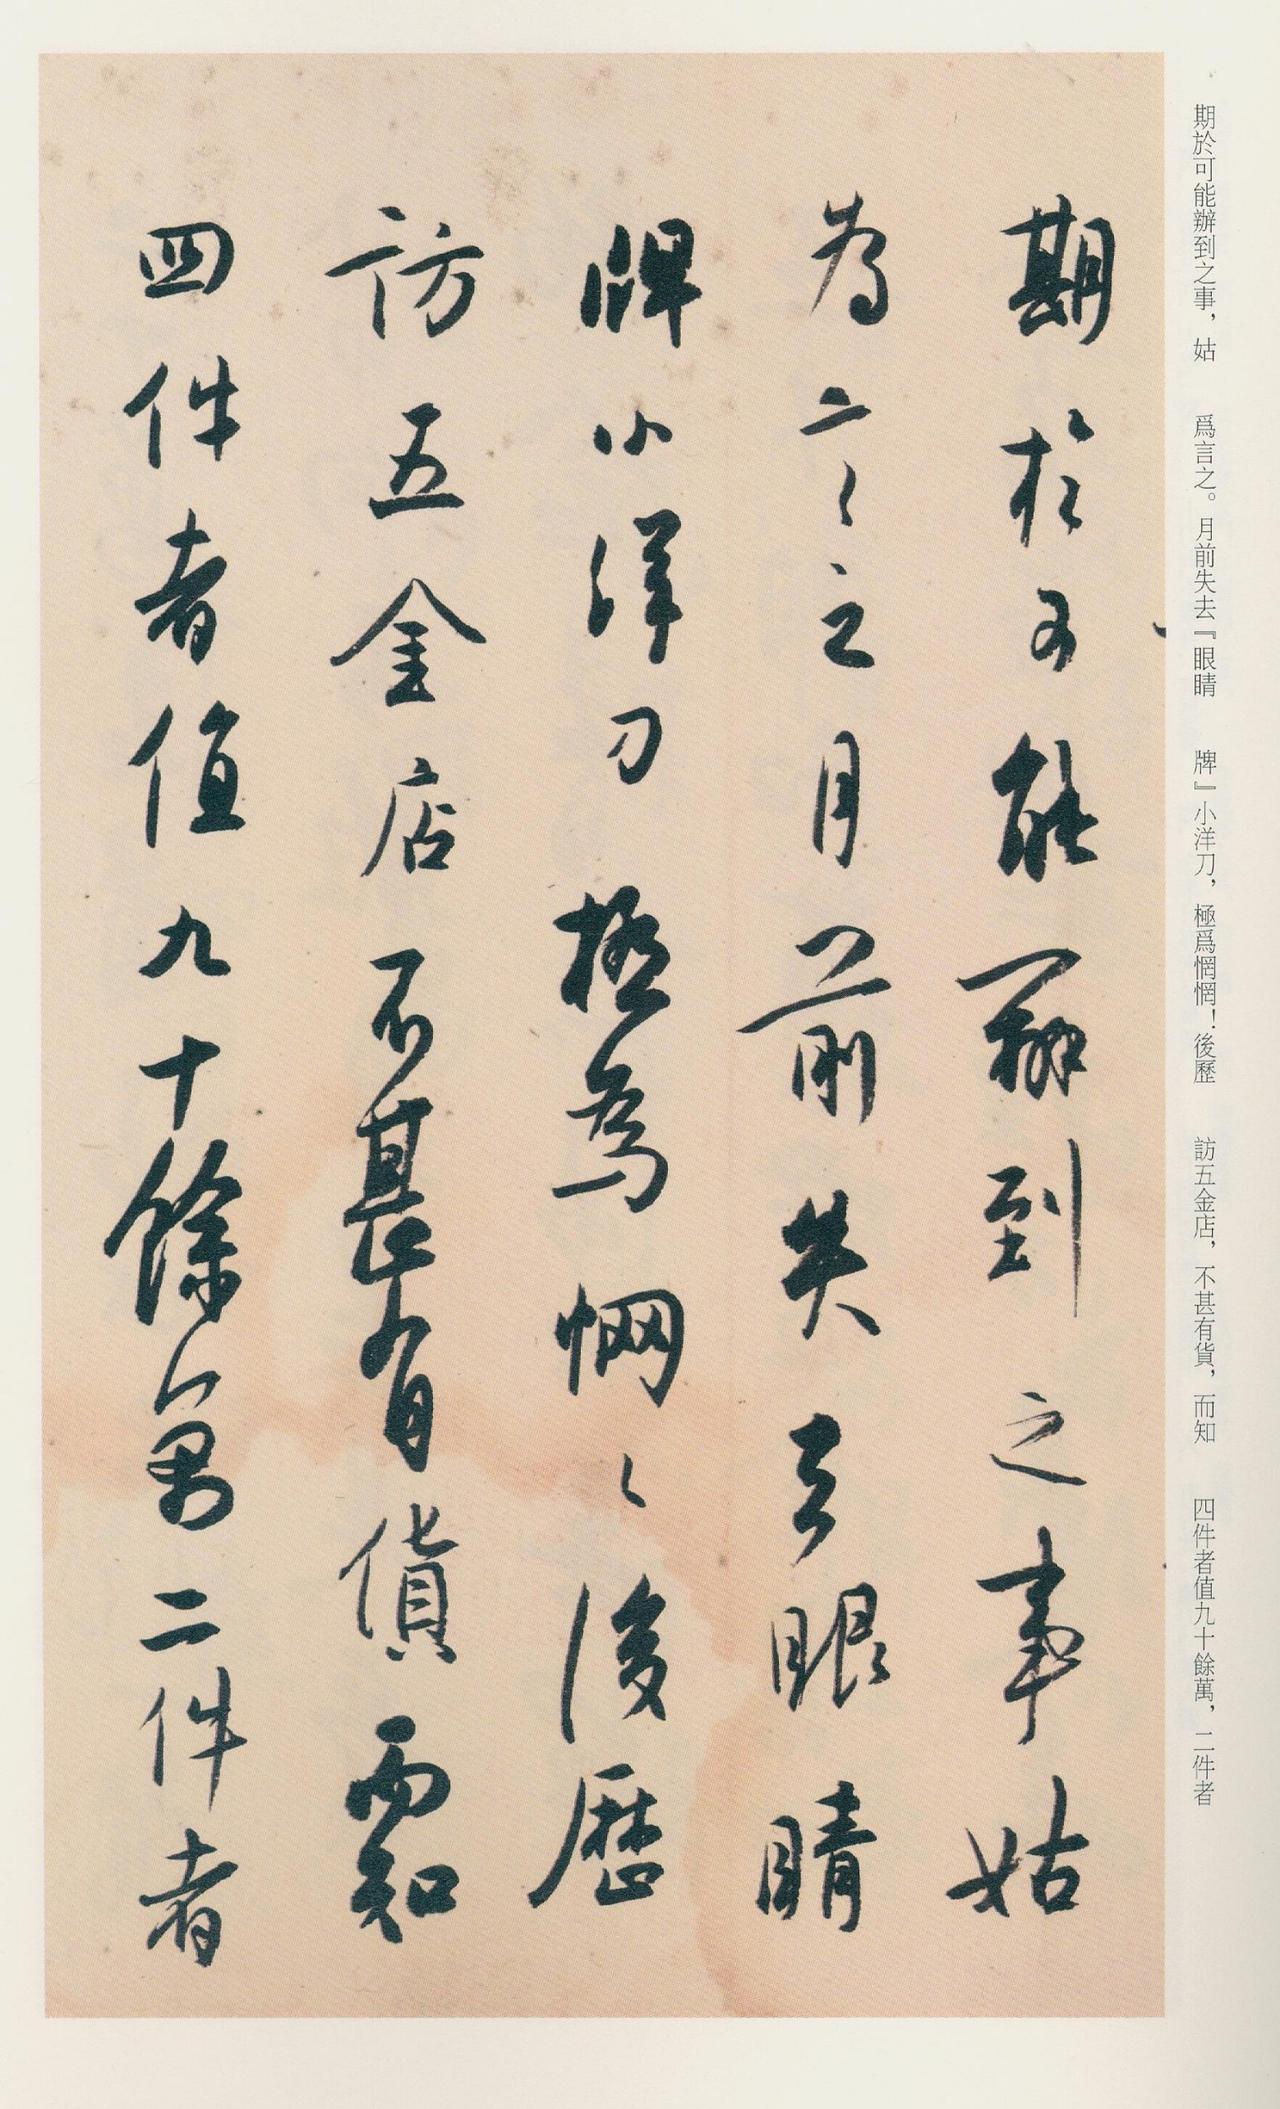 期於可能辦到之事，姑　爲言之。月前失去『眼睛　牌』小洋刀，極爲惘惘！後歷　訪五金店，不甚有貨，而知　四件者值九十餘萬，二件者
期於可能辦到之事姑
為言之月前失去眼睛
牌小洋刀極為惘〻後歷
訪五金店不甚有貨而知
四件者值九十餘萬二件者